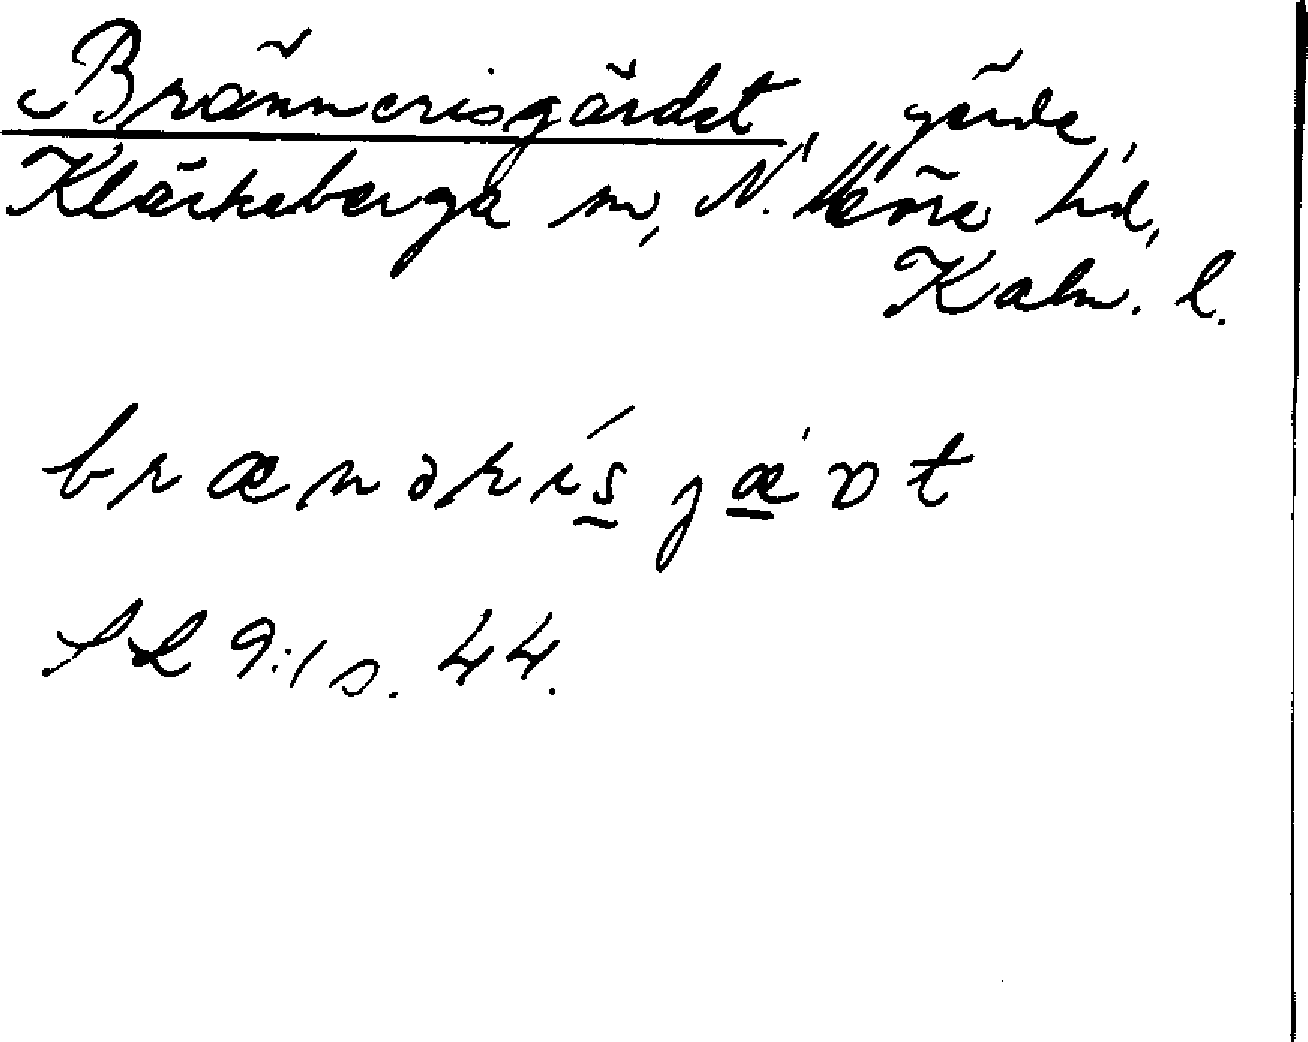 Brännerisgärdet, gärde,
Kläckeberga sn, N. Möre hd,
Kalm. l.
brænərís jævt
SL 9:1 s. 44.